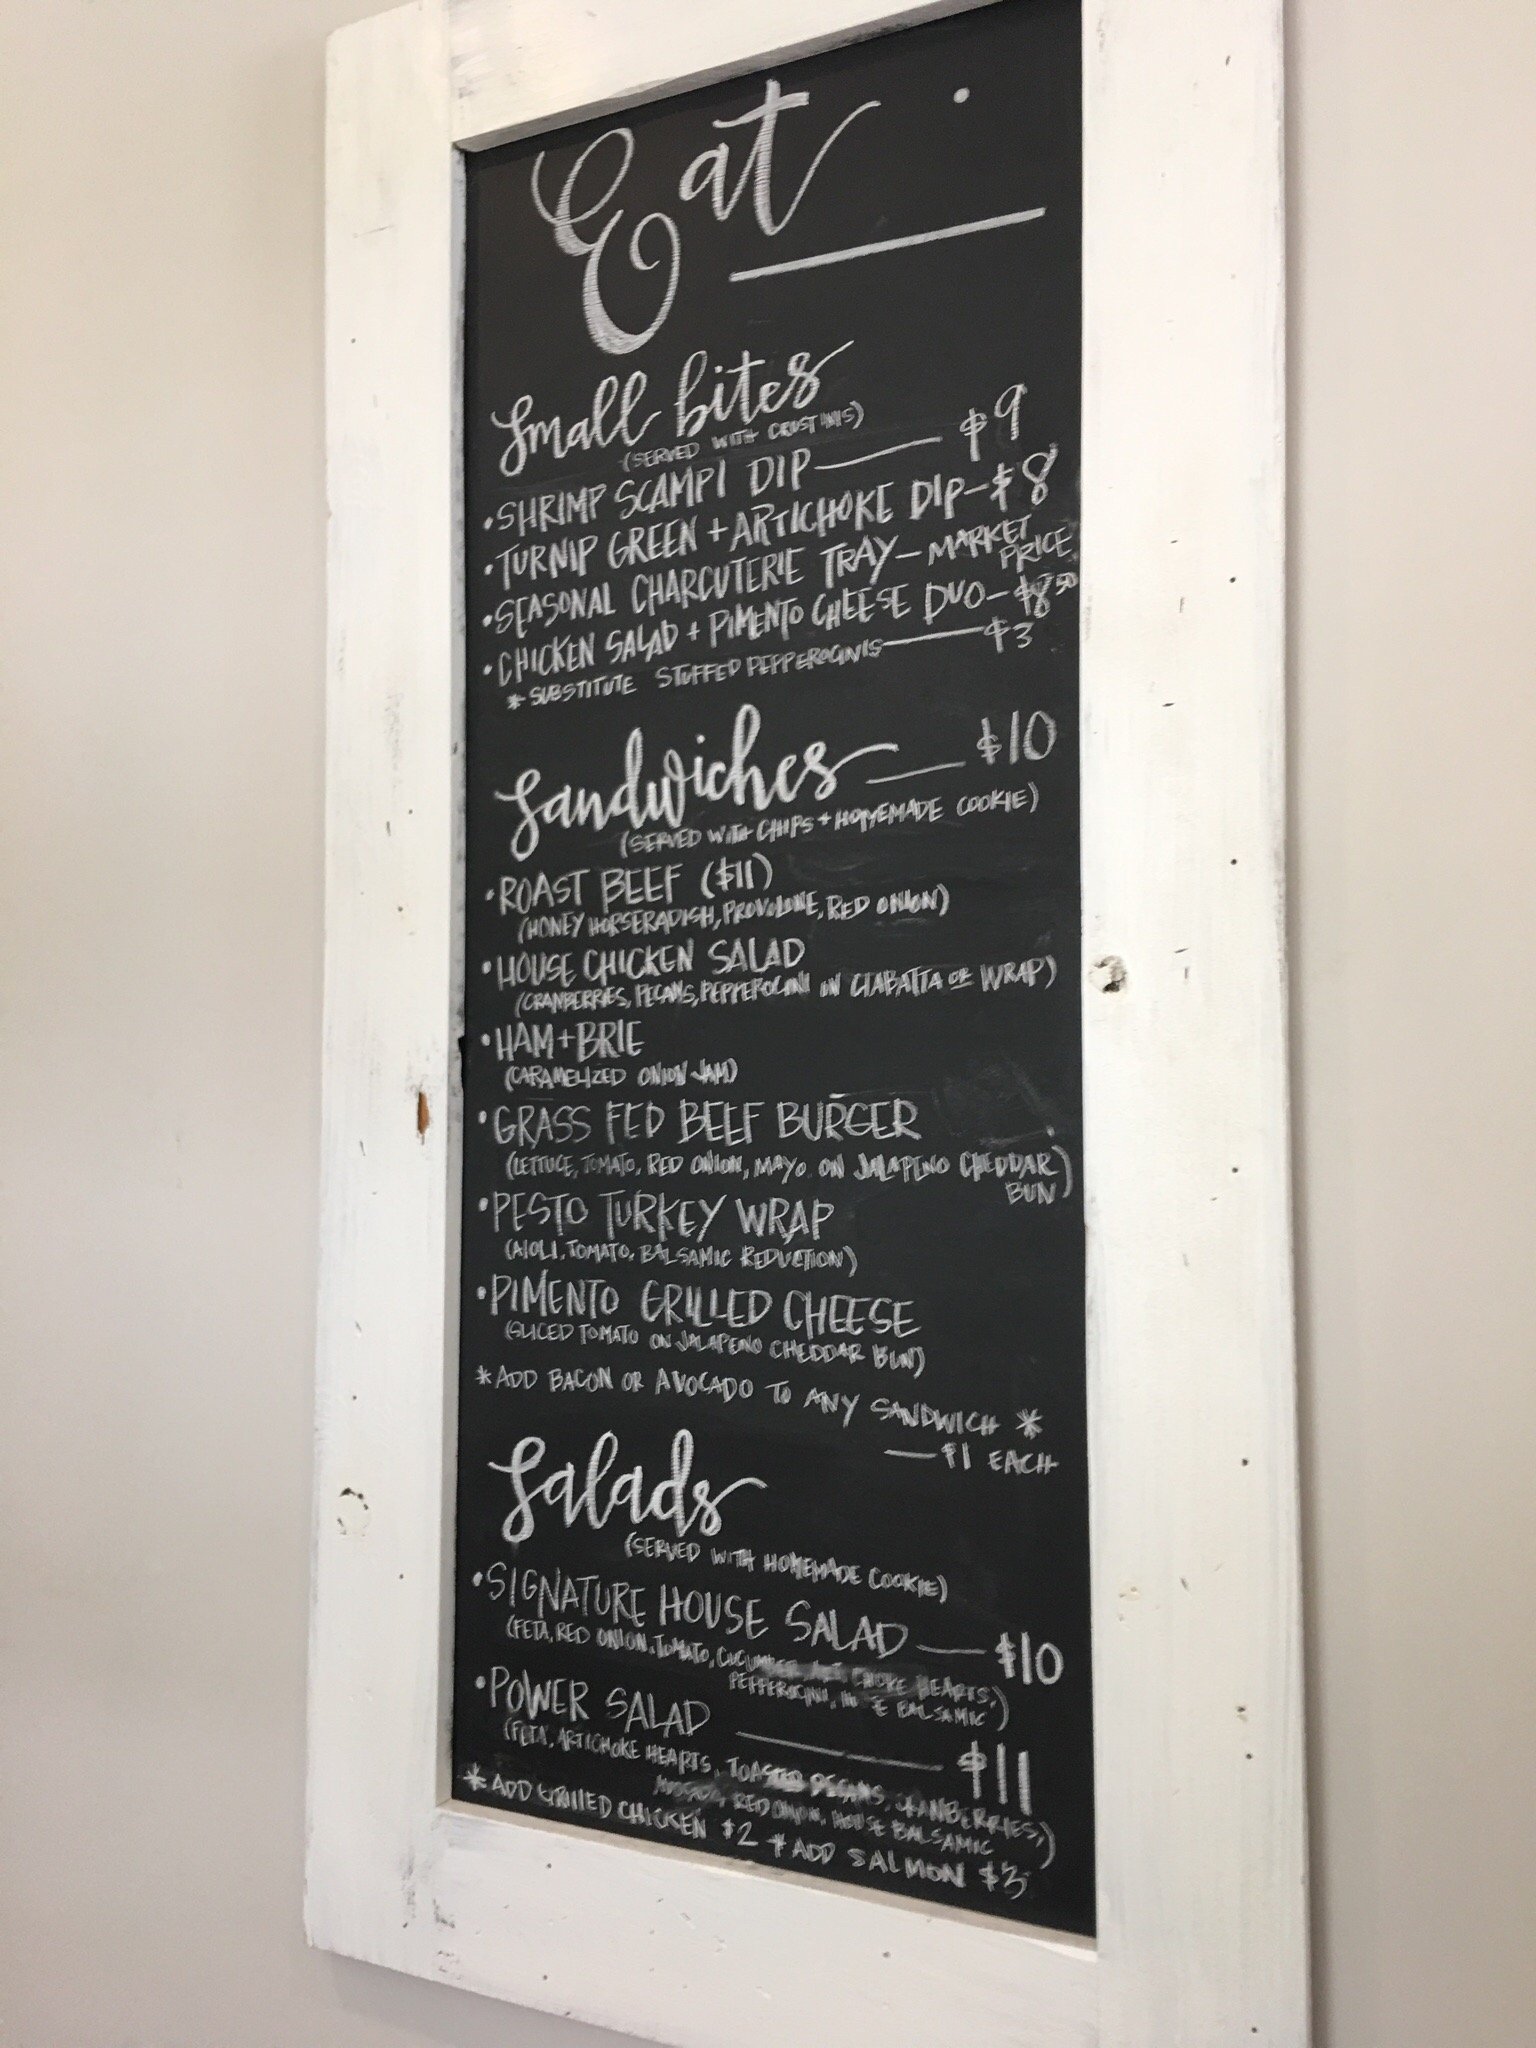 Eat.
Small bites
(SERVED WITH CROSTINIS)
•SHRIMP SCAMPI DIP — $9
•TURNIP GREEN + ARTICHOKE DIP — $8
•SEASONAL CHARCUTERIE TRAY — MARKET PRICE
•CHICKEN SALAD + PIMENTO CHEESE DUO — $8.50
* SUBSTITUTE STUFFED PEPPEROCINIS — $3
Sandwiches — $10
(SERVED WITH CHIPS + HOMEMADE COOKIE)
•ROAST BEEF ($11)
(HONEY HORSERADISH, PROVOLONE, RED ONION)
•HOUSE CHICKEN SALAD
(CRANBERRIES, PECANS, PEPPEROCINI ON CIABATTA OR WRAP)
•HAM + BRIE
(CARAMELIZED ONION JAM)
•GRASS FED BEEF BURGER
(LETTUCE, TOMATO, RED ONION, MAYO. ON JALAPENO CHEDDAR
BUN)
•PESTO TURKEY WRAP
(AIOLI, TOMATO, BALSAMIC REDUCTION)
•PIMENTO GRILLED CHEESE
(SLICED TOMATO ON JALAPENO CHEDDAR BUN)
*ADD BACON OR AVOCADO TO ANY SANDWICH *
— $1 EACH
Salads
(SERVED WITH HOMEMADE COOKIE)
•SIGNATURE HOUSE SALAD — $10
(FETA, RED ONION, TOMATO, CUCUMBER, CHOKE HEARTS,
PEPPEROCINI, BALSAMIC)
•POWER SALAD — $11
(FETA, ARTICHOKE HEARTS, TOASTED PECANS, CRANBERRIES,
RED ONION, HOUSE BALSAMIC)
*ADD GRILLED CHICKEN $2 * ADD SALMON $3